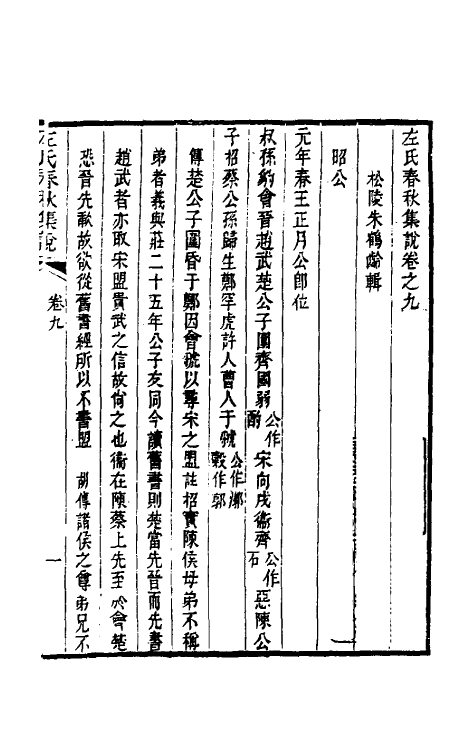 左氏春秋集說卷之九
松陵朱鶴齡輯
昭公
元年春王正月公卽位
叔孫豹會晉趙武楚公子圍齊國弱公作酌宋向戌衞齊公作石惡陳公
子招蔡公孫歸生鄭罕虎許人曹人于虢公作漷穀作郭
傳楚公子圍昏于鄭因會虢以尋宋之盟註招實陳侯母弟不稱
弟者義與莊二十五年公子友同今讀舊書則楚當先晉而先書
趙武者亦取宋盟貴武之信故尙之也衞在陳蔡上先至於會楚
恐晉先歃故欲從舊書經所以不書盟 胡傳諸侯之尊弟兄不
左氏春秋集說 卷九 一